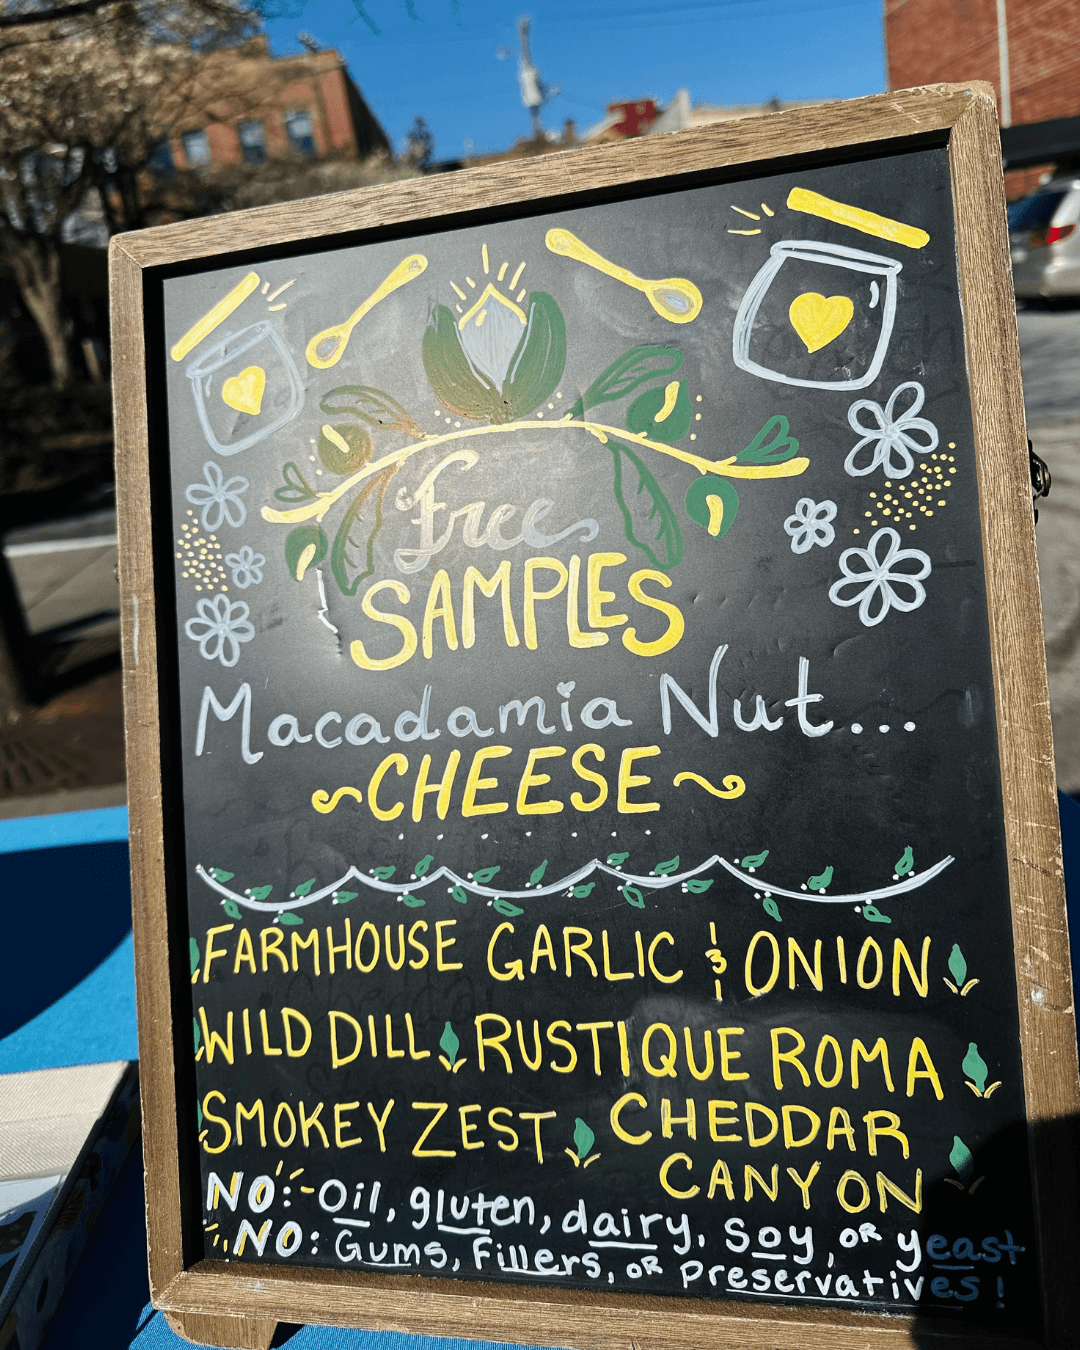 Free
SAMPLES
Macadamia Nut...
~CHEESE~
FARMHOUSE GARLIC & ONION
WILD DILL RUSTIQUE ROMA
SMOKEY ZEST CHEDDAR
CANYON
NO:-Oil, gluten, dairy, Soy, OR yeast
NO: Gums, Fillers, OR Preservatives!